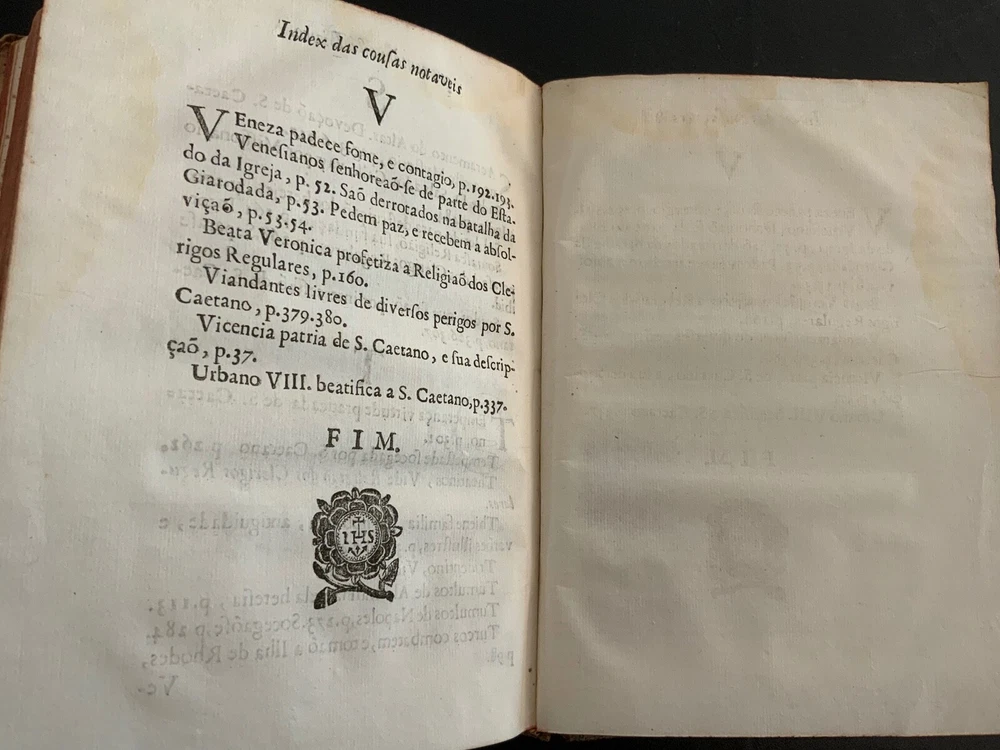 Index das couſas notaveis
V
VEneza padece fome, e contagio, p.192.193.
Veneſianos ſenhoreaõ-ſe de parte do Eſta-
do da Igreja, p. 52. Saõ derrotados na batalha da
Giarodada, p.53. Pedem paz, e recebem a abſol-
viçaõ, p.53.54.
Beata Veronica profetiza a Religiaõ dos Cle-
rigos Regulares, p.160.
Viandantes livres de diverſos perigos por S.
Caetano, p.379.380.
Vicencia patria de S. Caetano, e ſua deſcrip-
çaõ, p.37.
Urbano VIII. beatifica a S. Caetano, p.337.
FIM.
IHS